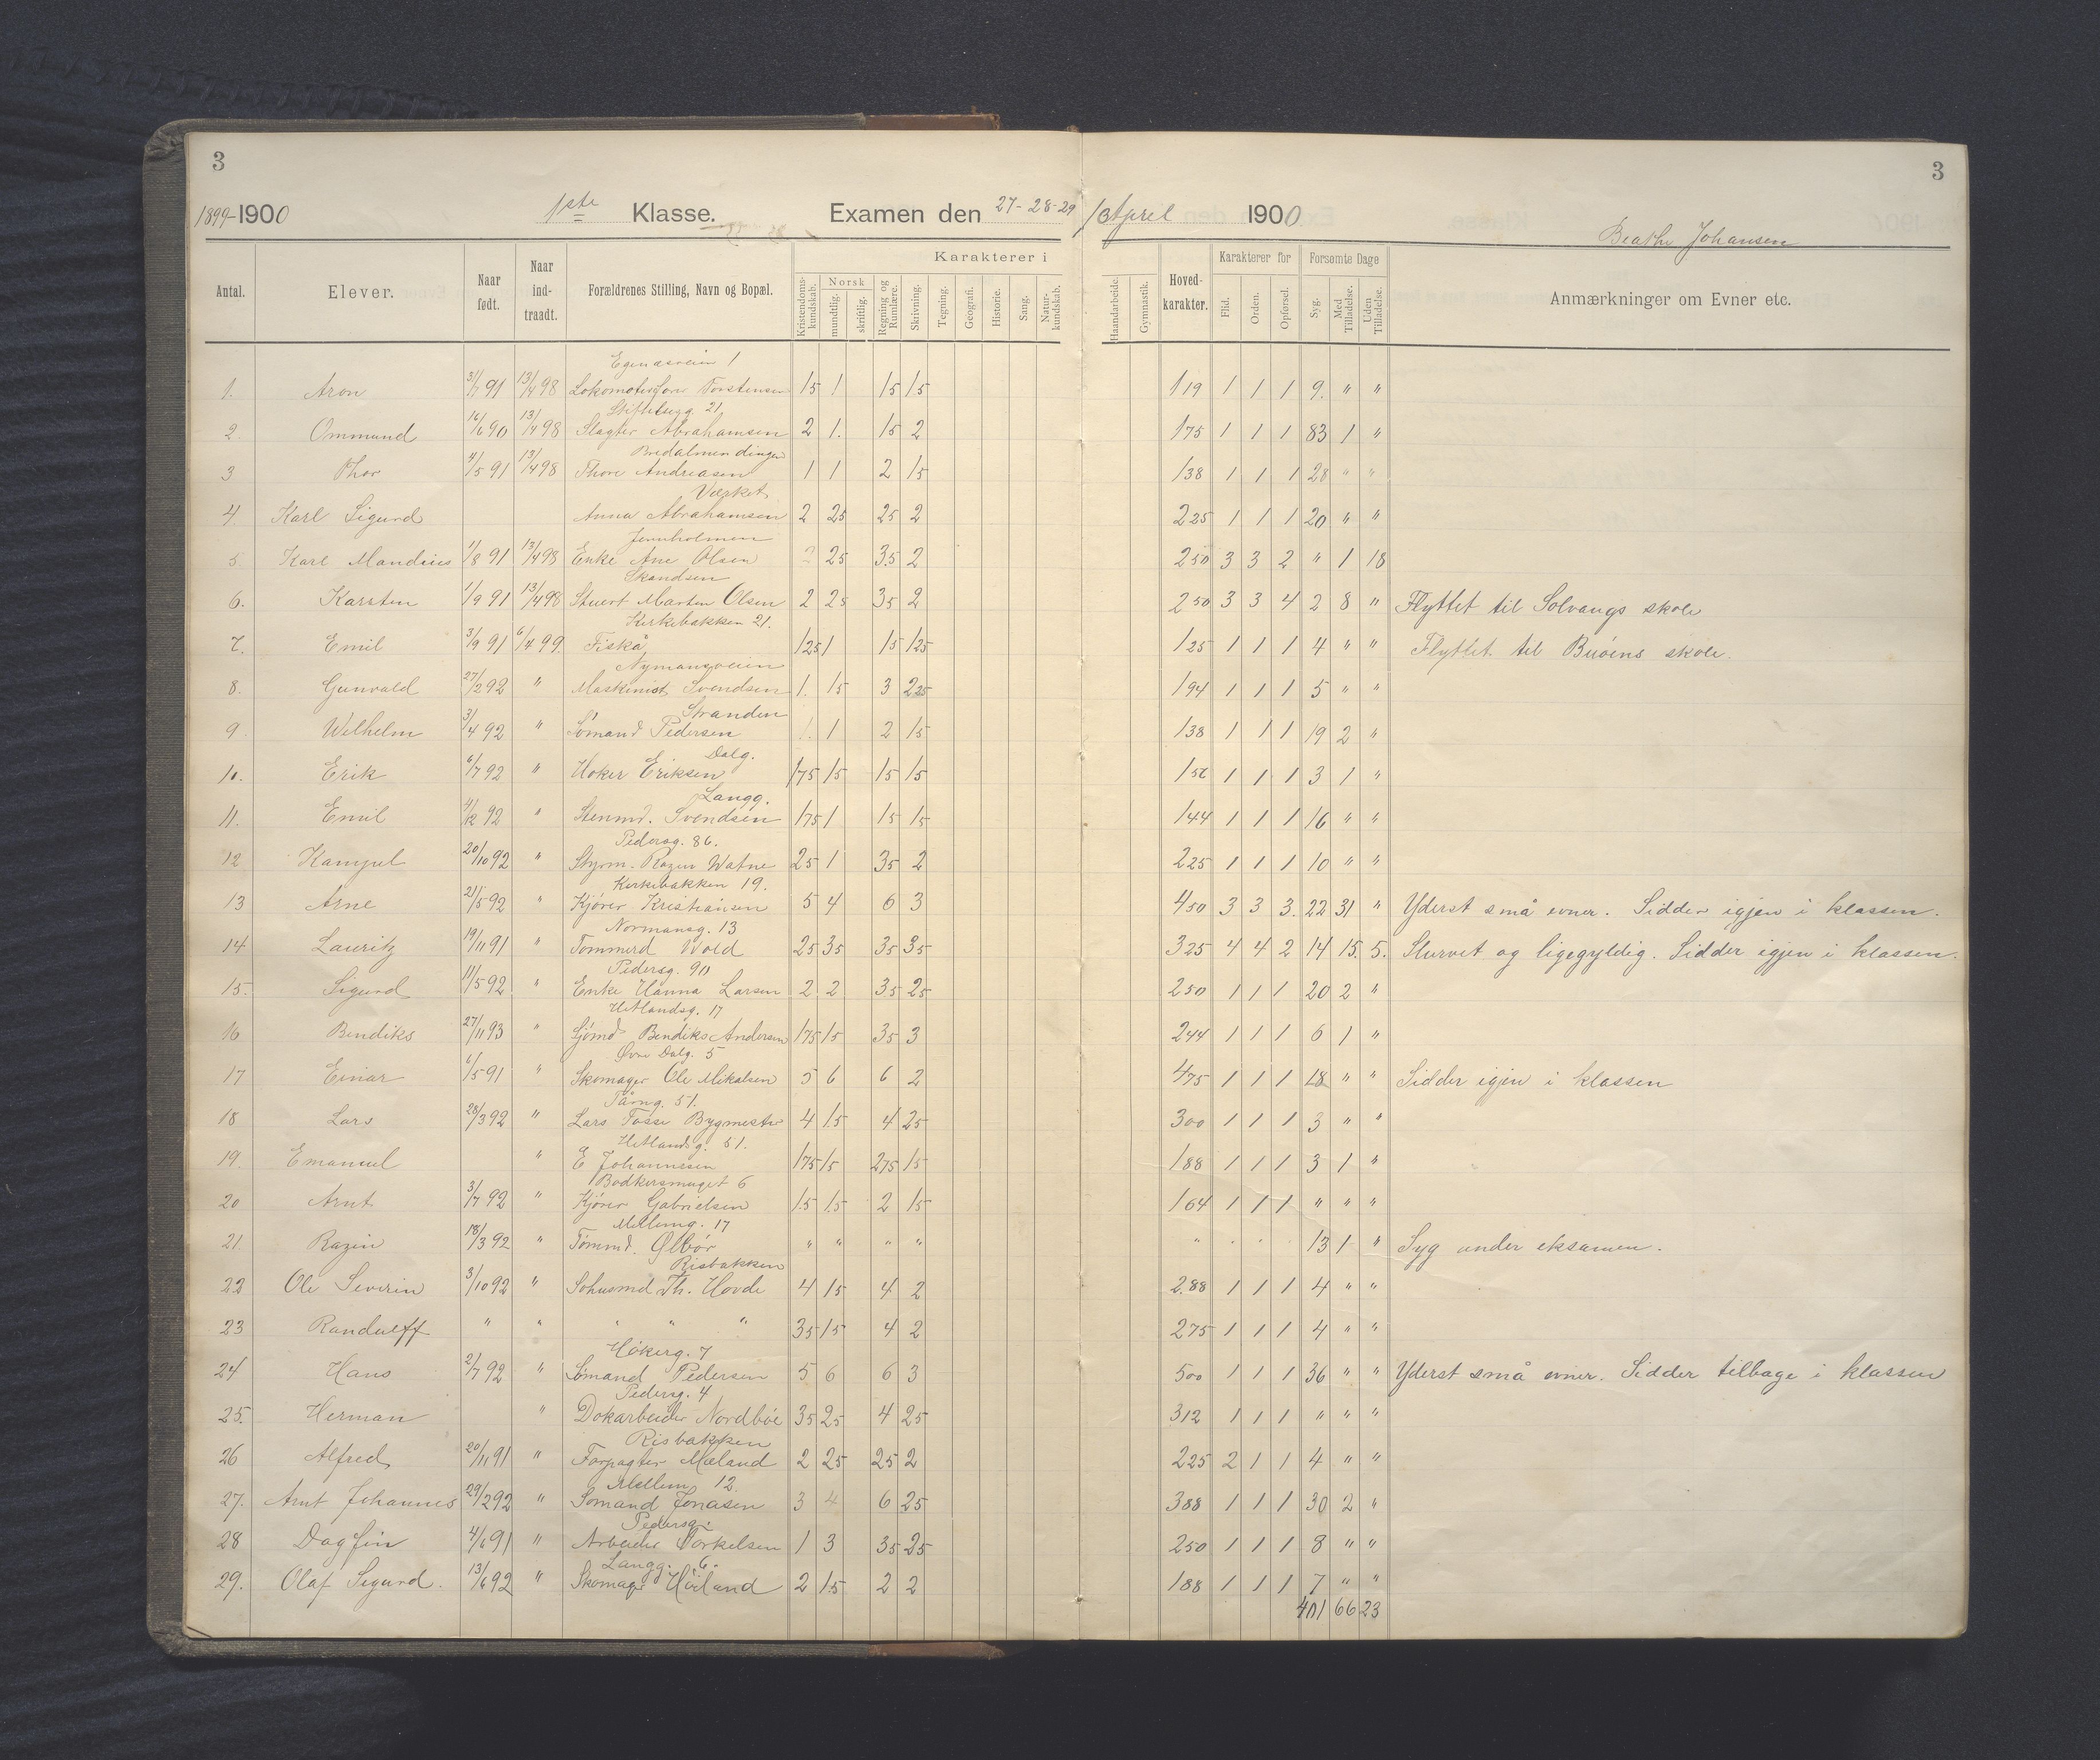 3
3
1899-1900 1ste Klasse. Examen den 27-28-29 April 1900
Beathe Johansen
Antal. Elever. Naar født. Naar ind-traadt. Forældrenes Stilling, Navn og Bopæl. Karakterer i Hoved-karakter. Karakterer for Forsømte Dage Anmærkninger om Evner etc.
Kristendoms-kundskab. Norsk mundtlig. skriftlig. Regning og Rumlære. Skrivning. Tegning. Geografi. Historie. Sang. Natur-kundskab. Haandarbeide. Gymnastik. Flid. Orden. Opførsel. Syg. Med Tilladelse. Uden Tilladelse.
1. Aron 91 13/4 98 Torstensen 15 1 15 15 119 1 1 1 9. " "
21
2. Ommund 16/6 90 13/4 98 Slagter Abrahamsen 2 1. 15 2 175 1 1 1 83 1 "
3 Thor 4/5 91 13/4 98 Thore Andreasen 1 1 2 15 138 1 1 1 28 " "
Værket
4. Karl Sigurd Anna Abrahamsen 2 25 25 2 225 1 1 1 20 " "
5. Karl Mandius 11/8 91 13/4 98 Enke Ane Olsen 2 25 35 2 250 3 3 2 " 1 18
Skandsen
6. Karsten 1/9 91 13/4 98 Stuert Marten Olsen 2 25 35 2 250 3 3 4 2 8 " Flyttet til Solvangs skole
Kirkebakken 21.
7. Emil 3/9 91 6/4 99. Fiskå 125 1 15 125 125 1 1 1 4 " " Flyttet til Buøens skole.
Nymansveien
8. Gunvald 27/2 92 " Maskinist Svendsen 1. 15 3 225 194 1 1 1 5 " "
Stranden
9. Wilhelm 3/4 92 " Sømand Pedersen 1 1 2 15 138 1 1 1 19 2 "
Dalg.
10. Erik 6/7 92 " Høker Eriksen 175 15 15 15 156 1 1 1 3 1 "
Langg.
11. Emil 92 " Stenmd. Svendsen 175 1 15 15 144 1 1 1 16 " "
Pedersg. 86.
12 20/10 92 " Styrm. Razin Watne 25 1 35 2 225 1 1 1 10 " "
Kirkebakken 19.
13 Arne 21/5 92 " Kjører Kristiansen 5 4 6 3 450 3 3 3. 22 31 " Yderst små evner. Sidder igjen i klassen.
Normansg. 13
14 Lauritz 19/11 91 " Tømmerd Wold 25 35 35 35 325 4 4 2 14 15. 5. Slurvet og ligegyldig. Sidder igjen i klassen.
Pedersg. 90
15. Sigurd 11/5 92 " Enke Hanna Larsen 2 2 35 25 250 1 1 1 20 2 "
Hetlandsg. 17
16 Bendiks 27/11 93 " Sjømd Bendiks Andersen 175 15 35 3 244 1 1 1 6 1 "
Øvre Dalg. 5
17 Einar 6/5 91 " Skomager Ole Mikalsen 5 6 6 2 475 1 1 1 18 " " Sidder igjen i klassen
Tårng. 51.
18 Lars 28/3 92 " Lars Fosse Bygmester 4 15 4 25 300 1 1 1 3 " "
Hetlandsg. 51.
19. Emanuel " E Johannesen 175 15 275 15 188 1 1 1 3 1 "
Bødkersmuget 6
20 Arnt 3/7 92 " Kjører Gabrielsen 15 15 2 15 164 1 1 1 " " "
Mellemg. 17
21. Razin 18/3 92 " Tømmd. Ølbør " " " " " " " " 13 1 " Syg under eksamen.
Risbakken
22 Ole Severin 3/10 92 " Th. Hovde 4 15 4 2 2.88 1 1 1 4 " "
23 Randulff " " " " " 35 15 4 2 275 1 1 1 4 " "
Høkerg. 7
24 Hans 2/7 92 " Sømand Pedersen 5 6 6 3 500 1 1 1 36 " " Yderst små evner. Sidder tilbage i klassen
Pedersg. 4
25. Herman " Dokarbeider Nordbøe 35 25 4 25 312 1 1 1 " " "
Risbakken
26 Alfred 20/11 91 " Forpagter Mæland 2 25 25 2 225 2 1 1 4 " "
Mellem 12.
27. Arnt Johannes 29/2 92 " Sømand Jonasen 3 4 6 25 388 1 1 1 30 2 "
Pedersg.
28 Dagfin 4/6 91 " Arbeider Torkelsen 1 3 35 25 250 1 1 1 8 " "
Langg. 6.
29. Olaf Sigurd. 13/6 92 " Skomager Høiland 2 1.5 2 2 188 1 1 1 7 " "
401 66 23